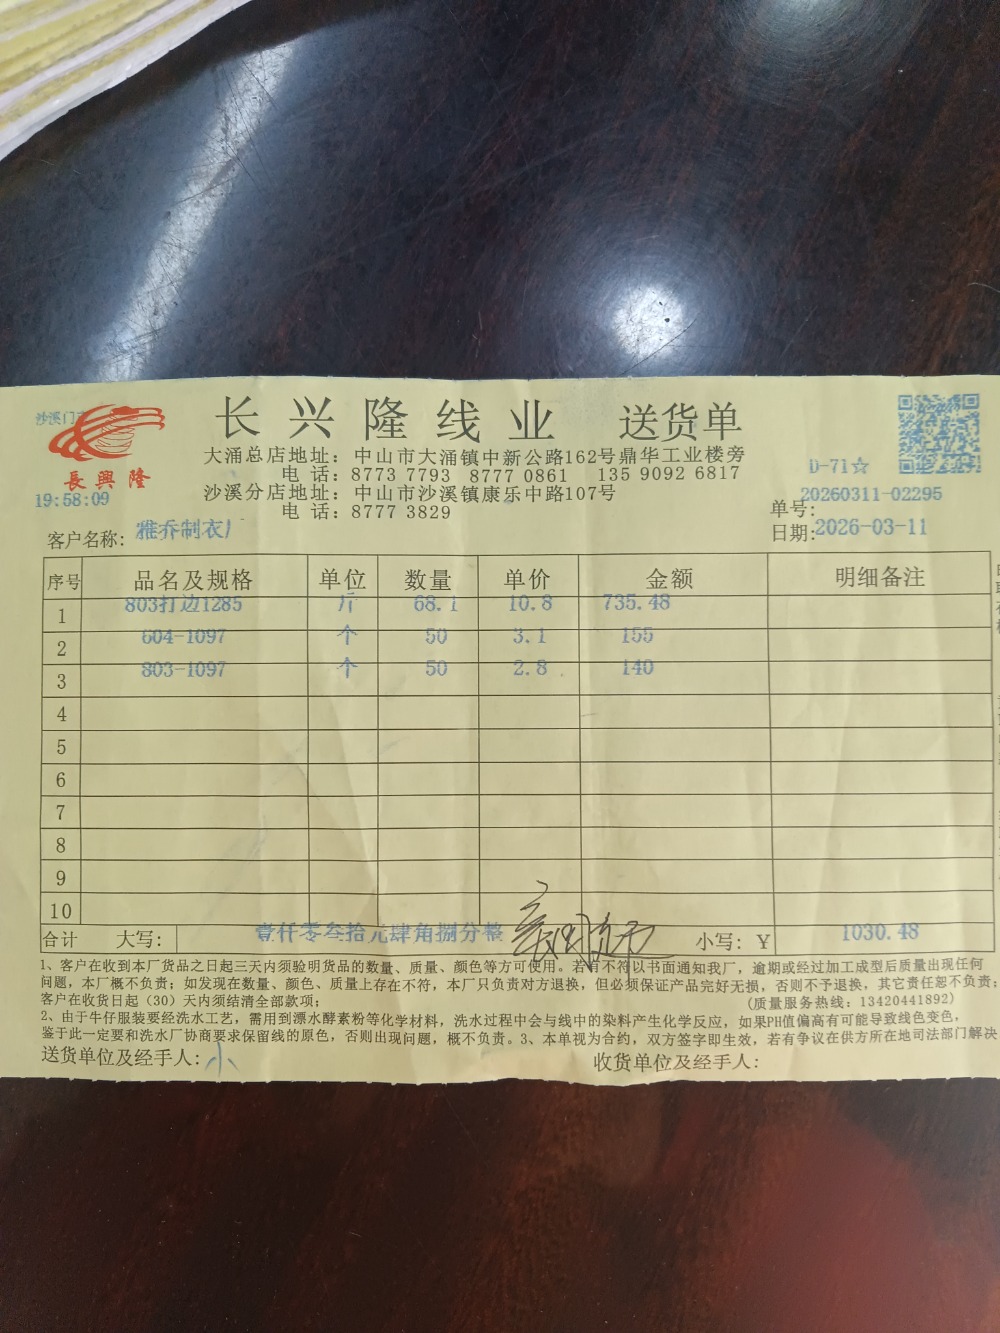 沙溪门市
長興隆
19:58:09
长兴隆线业 送货单
大涌总店地址：中山市大涌镇中新公路162号鼎华工业楼旁
电话：8773 7793 8777 0861 135 9092 6817
沙溪分店地址：中山市沙溪镇康乐中路107号
电话：8777 3829
D-71☆
单号：20260311-02295
客户名称：雅乔制衣厂
日期：2026-03-11
序号 品名及规格 单位 数量 单价 金额 明细备注
1 803打边1285 斤 68.1 10.8 735.48
2 604-1097 个 50 3.1 155
3 803-1097 个 50 2.8 140
4
5
6
7
8
9
10
合计 大写：壹仟零叁拾元肆角捌分整 小写：￥ 1030.48
1、客户在收到本厂货品之日起三天内须验明货品的数量、质量、颜色等方可使用。若有不符以书面通知我厂，逾期或经过加工成型后质量出现任何
问题，本厂概不负责；如发现在数量、颜色、质量上存在不符，本厂只负责对方退换，但必须保证产品完好无损，否则不予退换，其它责任恕不负责；
客户在收货日起（30）天内须结清全部款项； （质量服务热线：13420441892）
2、由于牛仔服装要经洗水工艺，需用到漂水酵素粉等化学材料，洗水过程中会与线中的染料产生化学反应，如果PH值偏高有可能导致线色变色，
鉴于此一定要和洗水厂协商要求保留线的原色，否则出现问题，概不负责。3、本单视为合约，双方签字即生效，若有争议在供方所在地司法部门解决
送货单位及经手人：小 收货单位及经手人：